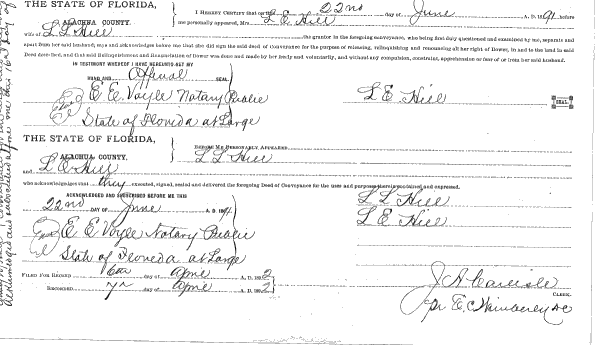 THE STATE OF FLORIDA,
ALACHUA COUNTY.
I HEREBY CERTIFY that on 22nd day of June A. D. 1891 before
me personally appeared, Mrs. L E Hill
wife of L L Hill the grantor in the foregoing conveyance, who being first duly questioned and examined by me, separate and
apart from her said husband, says and acknowledges before me that she did sign the said deed of Conveyance for the purpose of releasing, relinquishing and renouncing all her right of Dower, in and to the land in said
Deed described, and that said Relinquishment and Renunciation of Dower was done and made by her freely and voluntarily, and without any compulsion, constraint, apprehension or fear of or from her said husband.
IN TESTIMONY WHEREOF I HAVE HEREUNTO SET MY
HAND AND Official SEAL
E. E. Voyle Notary Public
State of Florida at Large
L E Hill
SEAL
THE STATE OF FLORIDA,
ALACHUA COUNTY.
BEFORE ME PERSONALLY APPEARED
L L Hill
and L E Hill
who acknowledge that they executed, signed, sealed and delivered the foregoing Deed of Conveyance for the uses and purposes therein contained and expressed.
ACKNOWLEDGED AND SUBSCRIBED BEFORE ME THIS
22nd DAY OF June A. D. 1891
L L Hill
L E Hill
E E Voyle Notary Public
State of Florida at Large
FILED FOR RECORD 6th day of April A. D. 1892
RECORDED 7th day of April A. D. 1892
J A Carlisle
CLERK.
pr E. C. Wimberly DC